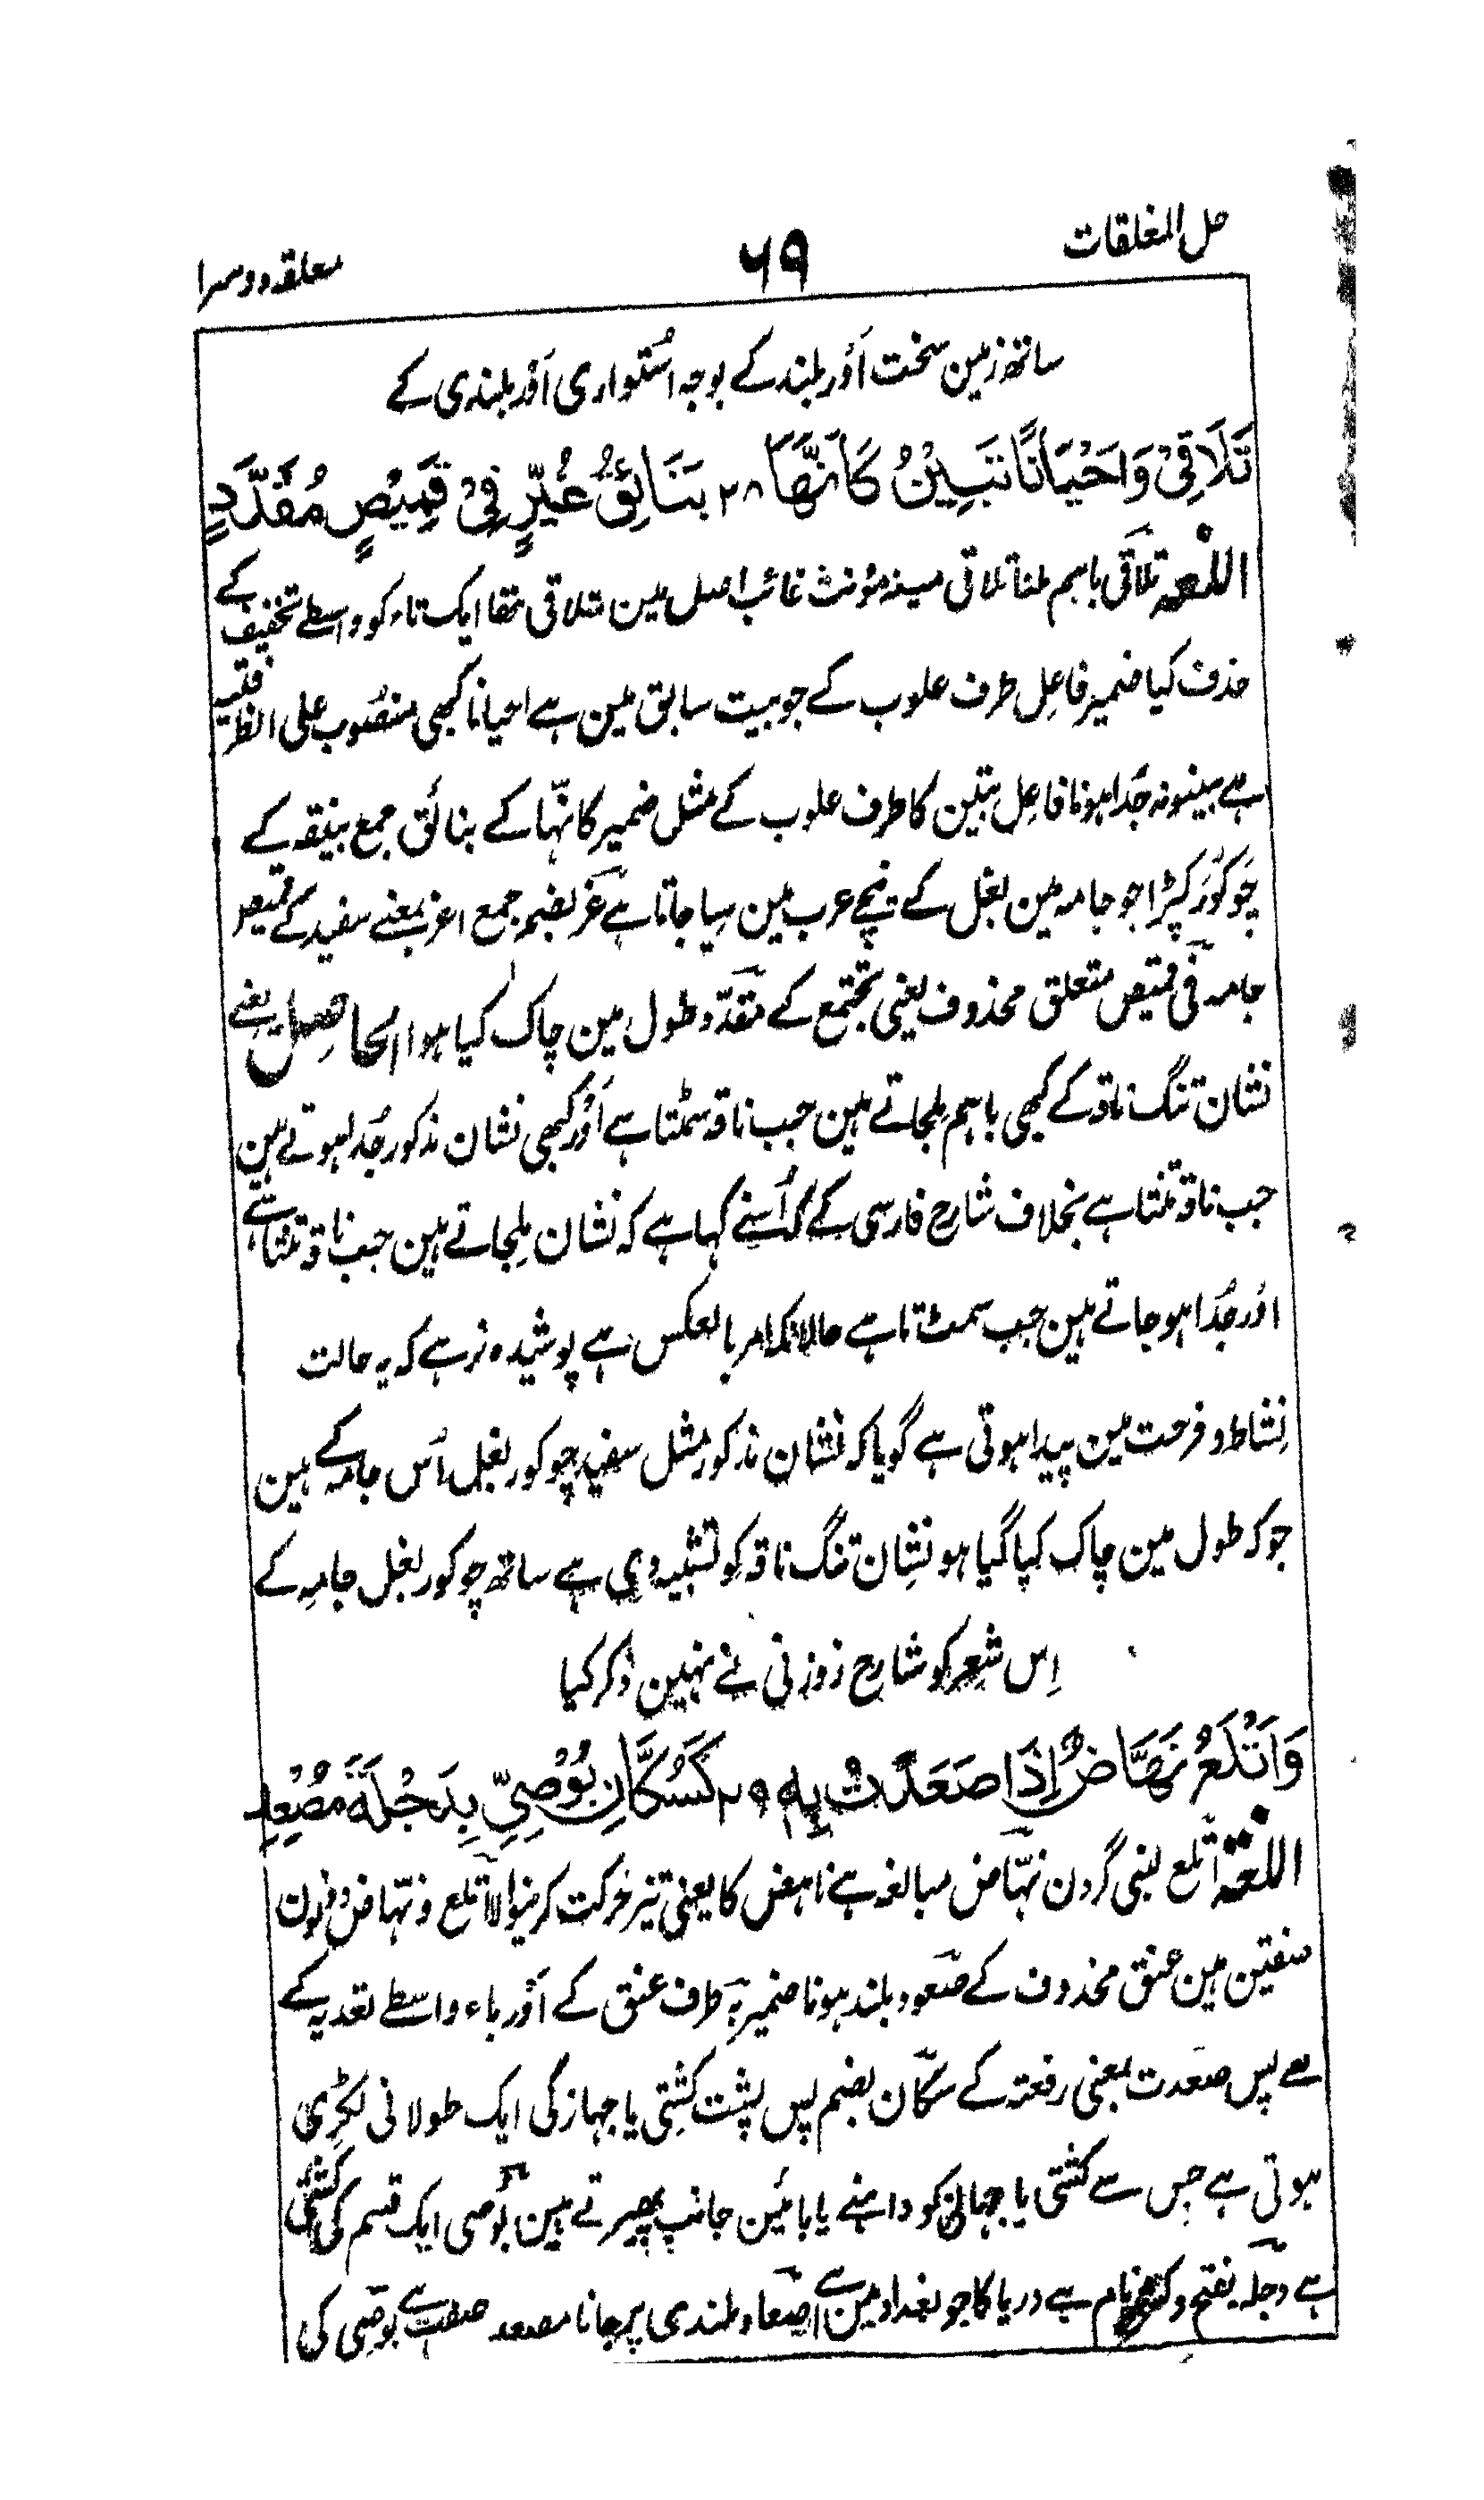 حل المغلقات
۶۹
معلقہ دوسرا
ساتھ زمین سخت اَوُر بلند کے بوجہ اسُتواری اَوُر بلندی کے
تَلَاقِیْ وَاَحْیَانًا تَبِیْنُ کَاَنَّهَا ۲۸ بَنَائِقُ غُرٍّ فِیْ قَمِیْصٍ مُقَدَّدٍ
اللغۃ تلاقی باہم ملنا تلاقی صیغہ مؤنث غائب اصل مین تتلاقی تھا ایک تاء کو واسطے تخفیف کے
حذف کیا ضمیر فاعِل طرف علوب کے جو بیت سابق مین ہے احیانا کبھی منصُوب علی الظرفیہ
ہے بینونہ جُدا ہونا فاعِل تبین کا طرف علوب کے مثل ضمیر کانّہا کے بنائق جمع بنیقہ کے
چوکوُر کپڑا جو جامہ مین بغل کے نیچے عرب مین سیا جاتا ہے غر بضم جمع اغر بمعنے سفید کے قمیص
جامہ فی قمیص متعلق محذوف یعنی تجتمع کے مقدّد طول مین چاک کیا ہوا الحاصِل یعنے
نشان تنگ ناقہ کے کبھی باہم ملجاتے ہین جب ناقہ سمٹتا ہے اَوُر کبھی نشان مذکور جُدا ہوتے ہین
جب ناقہ تنتا ہے بخلاف شارح فارسی کے کہ اُسنے کہا ہے کہ نشان ملجاتے ہین جب ناقہ تنتا ہے
اور جُدا ہو جاتے ہین جب سمٹتا ہے حالانکہ امر بالعکس ہے پوشیدہ نرہے کہ یہ حالت
نِشاط و فرحت مین پیدا ہوتی ہے گویا کہ نشان مذکور مثل سفید چوکور بغل اُس جامہ کے ہین
جو کہ طول مین چاک کیا گیا ہو نشِان تنگ ناقہ کو تشبیہ دی ہے ساتھ چوکور بغل جامہ کے
اِس شعر کو شارح زوزنی نے نہین ذکر کیا
وَاَتْلَعُ نَهَّاضٌ اِذَا صَعَّدَتْ بِهٖ ۲۹ کَسُکَّانِ بُوْصِیٍّ بِدَجْلَةَ مُصْعِدِ
اللغۃ اتلع لنبی گردن نہّاض مبالغہ ہے ناہض کا یعنی تیز حرکت کرنیوالا اتلع و نہّاض دونون
صفتین ہین عنق محذوف کے صعود بلند ہونا ضمیر بہ طرف عنق کے اَوُر باء واسطے تعدیہ کے
ہے پس صعدت بمعنی رفعتہ کے سکّان بضم پس پشت کشِتی یا جہاز کی ایک طولانی لکڑی
ہوتی ہے جس سے کشتی یا جہاز کو داہنے یا بائین جانب پھیرتے ہین بُوصی ایک قسم کی کشتی
ہے دجلہ بفتح و کسر نام ہے دریا کا جو بغداد مین ہے اصعاد بلندی پر جانا مصعد صفت ہے بوصی کی